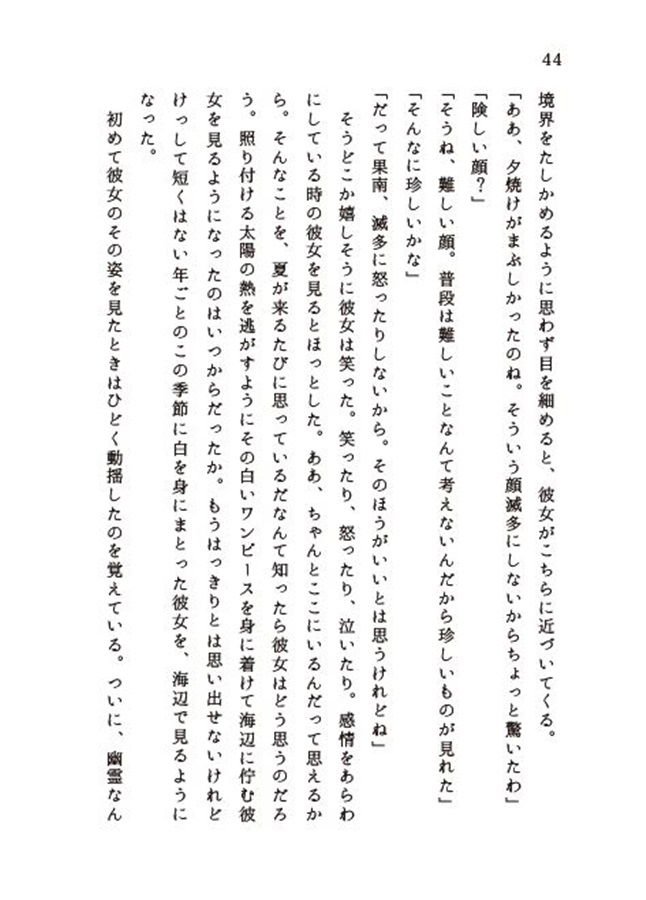 44
境界をたしかめるように思わず目を細めると、彼女がこちらに近づいてくる。
「ああ、夕焼けがまぶしかったのね。そういう顔滅多にしないからちょっと驚いたわ」
「険しい顔？」
「そうね、難しい顔。普段は難しいことなんて考えないんだから珍しいものが見れた」
「そんなに珍しいかな」
「だって果南、滅多に怒ったりしないから。そのほうがいいとは思うけれどね」
　そうどこか嬉しそうに彼女は笑った。笑ったり、怒ったり、泣いたり。感情をあらわ
にしている時の彼女を見るとほっとした。ああ、ちゃんとここにいるんだって思えるか
ら。そんなことを、夏が来るたびに思っているだなんて知ったら彼女はどう思うのだろ
う。照り付ける太陽の熱を逃がすようにその白いワンピースを身に着けて海辺に佇む彼
女を見るようになったのはいつからだったか。もうはっきりとは思い出せないけれど
けっして短くはない年ごとのこの季節に白を身にまとった彼女を、海辺で見るように
なった。
　初めて彼女のその姿を見たときはひどく動揺したのを覚えている。ついに、幽霊なん